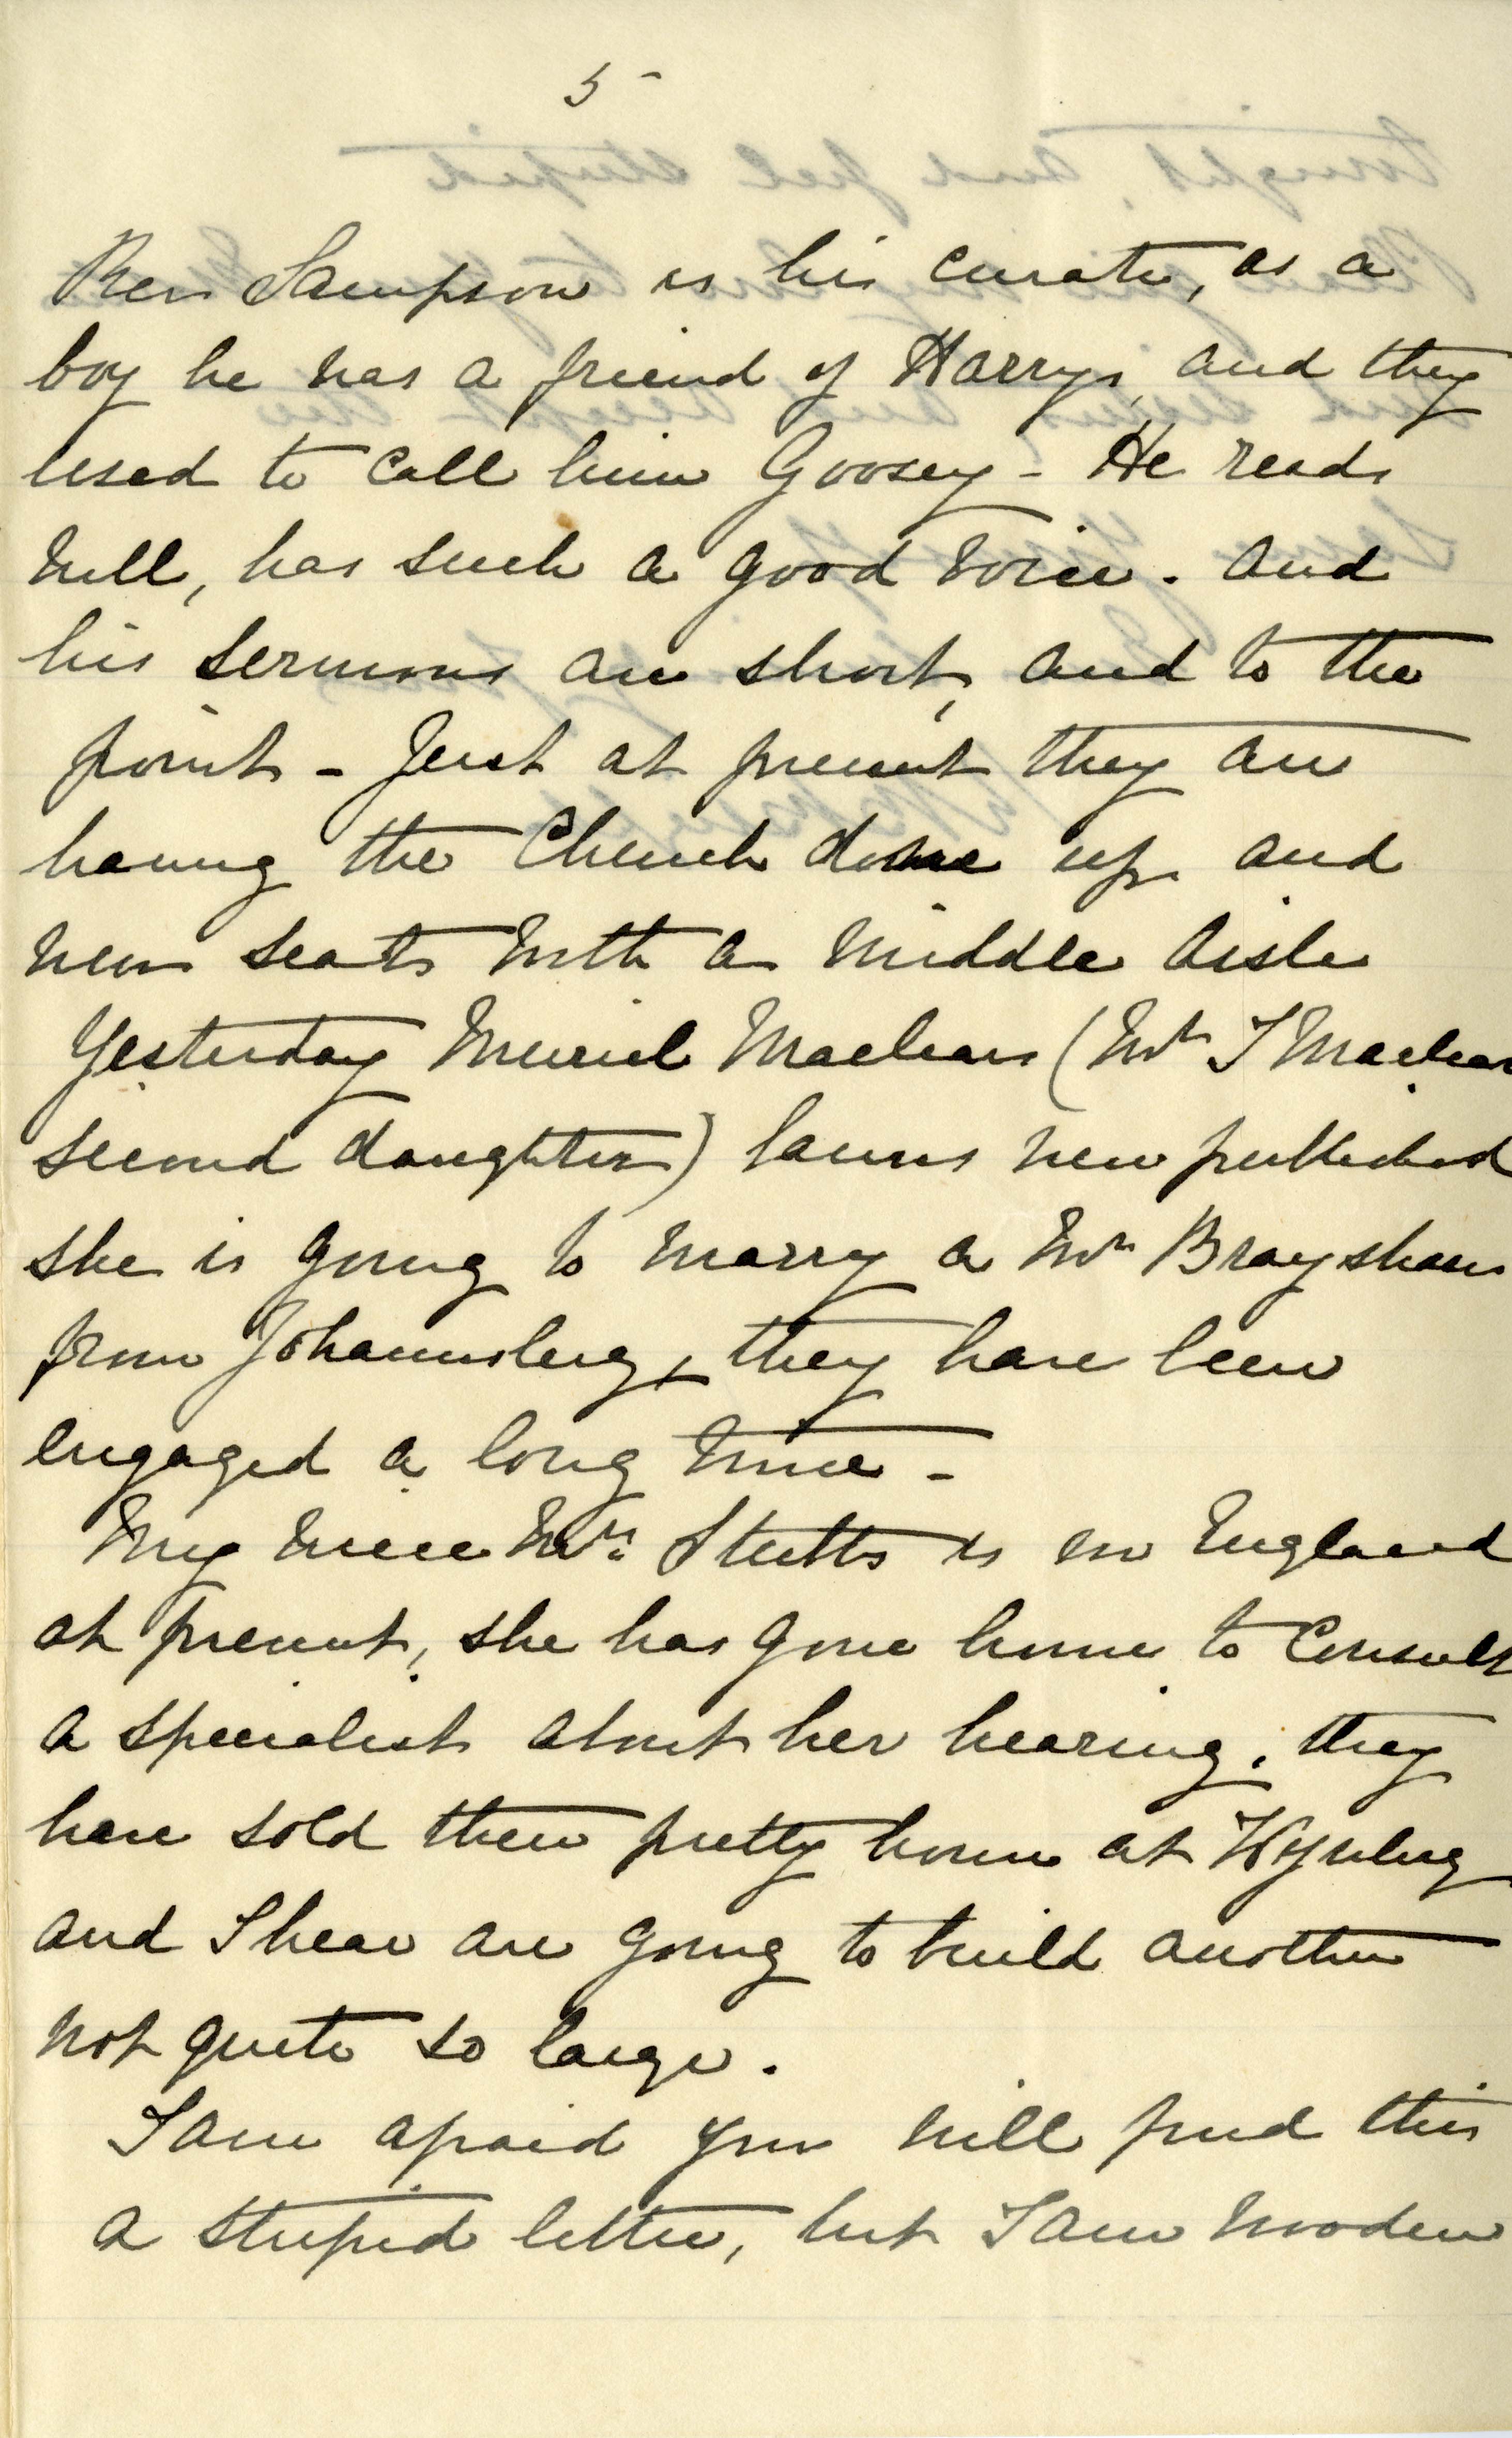 5-
Rev Sampson is his curate, as a
boy he was a friend of Harrys, and they
used to call him Goosey - He reads
well, has such a good voice. and
his sermons are short, and to the
point - Just at present they are
having the Church done up and
new seats with a middle aisle
Yesterday Muriel Maclear (Mr J Maclear
second daughter) banns were published
she is going to marry a Mr Brayshaw
from Johannesberg, they have been
engaged a long time -
My niece Mrs Stutts is in England
at present, she has gone home to consult
a specialist about her hearing. they
have sold their pretty home at Wynberg
and I hear are going to build another
not quite so large.
I am afraid you will find this
a stupid letter, but I am wooden